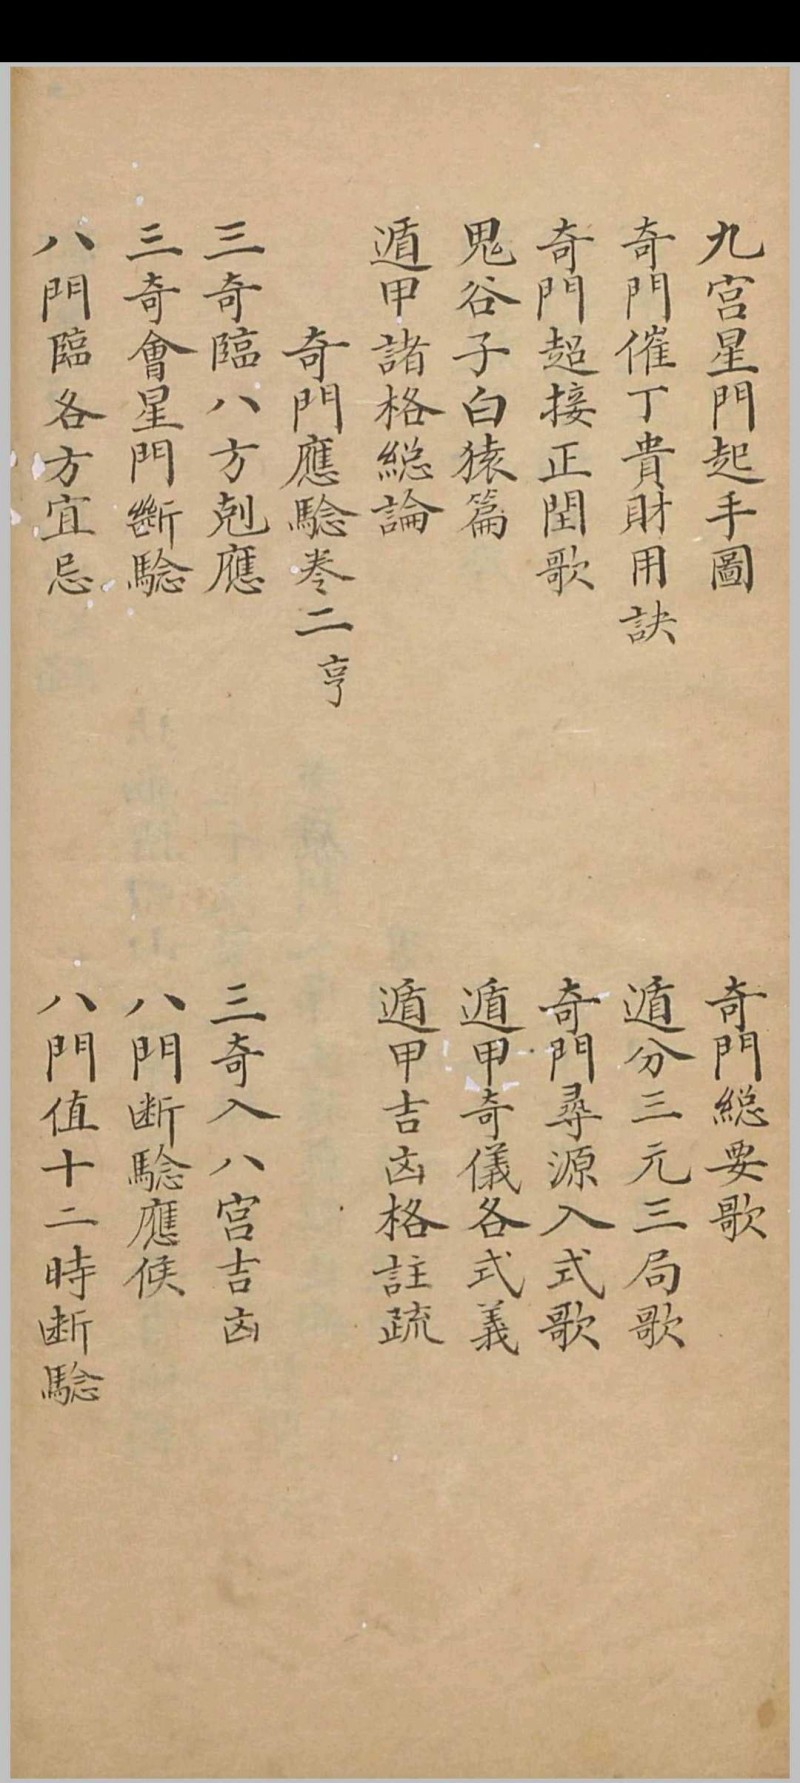 九宫星門起手圖
奇門總要歌
奇門催丁貴財用訣
遁分三元三局歌
奇門超接正閏歌
奇門尋源入式歌
鬼谷子白猿篇
遁甲奇儀各式義
遁甲諸格総論
遁甲吉凶格註疏
奇門應驗卷二亨
三奇臨八方剋應
三奇入八宫吉凶
三奇會星門斷驗
八門断驗應候
八門臨各方宜忌
八門值十二時断驗